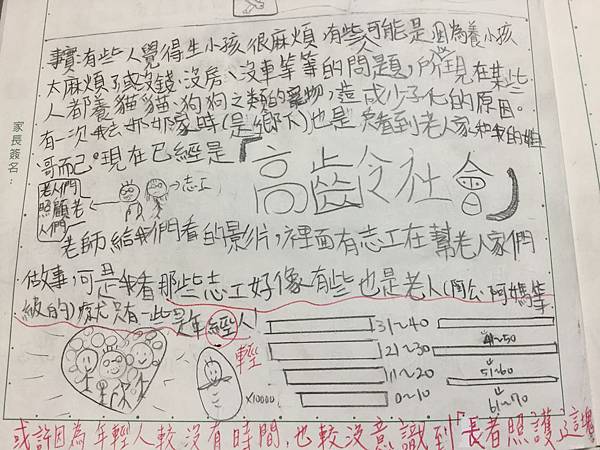 事實:有些人覺得生小孩很麻煩,有些人可能是因為養小孩
太麻煩了或沒錢、沒房、沒車等等的問題,所以現在某些
人都養貓貓、狗狗之類的寵物,造成少子化的原因。
有一次我去奶奶家時(是鄉下)也是只看到老人家和我的
哥而已。現在已經是「高齡社會」
老人們
照顧老
人們
志工
老師給我們看的影片,裡面有志工在幫老人家們
做事,可是我看那些志工好像有些也是老人(阿公、阿媽等
級的)只有一些是年經人!
輕
31~40
21~30
11~20
0~10
41~50
51~60
61~70
x10000
或許因為年輕人較沒有時間,也較沒意識到「長者照護」這
家長簽名: